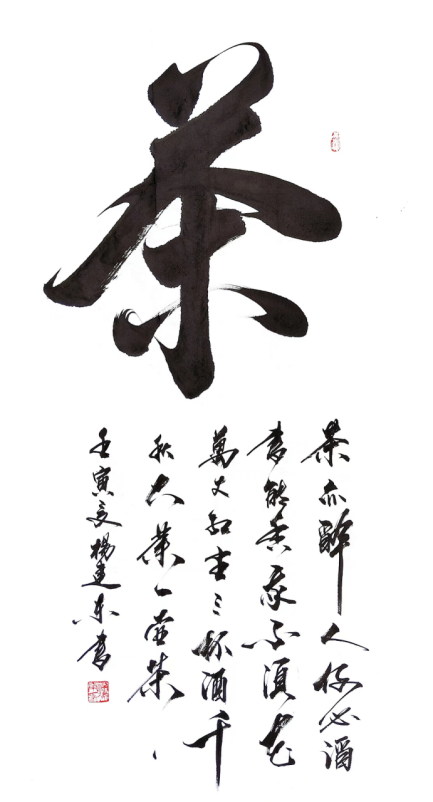 茶
茶亦醉人何必酒
書能香我不須花
萬丈紅塵三杯酒千
秋大業一壺茶
壬寅夏楊建东書